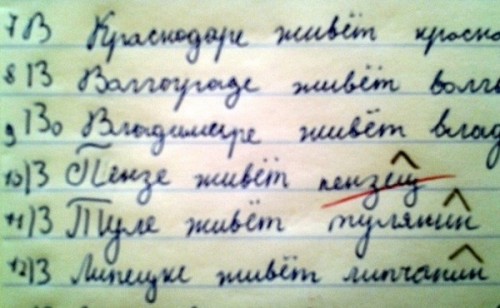 7) В Краснодаре живёт красно
8) В Волгограде живёт волго
9) Во Владимире живёт влад
10) В Пензе живёт пензец
11) В Туле живёт тулянин
12) В Липецке живёт липчанин